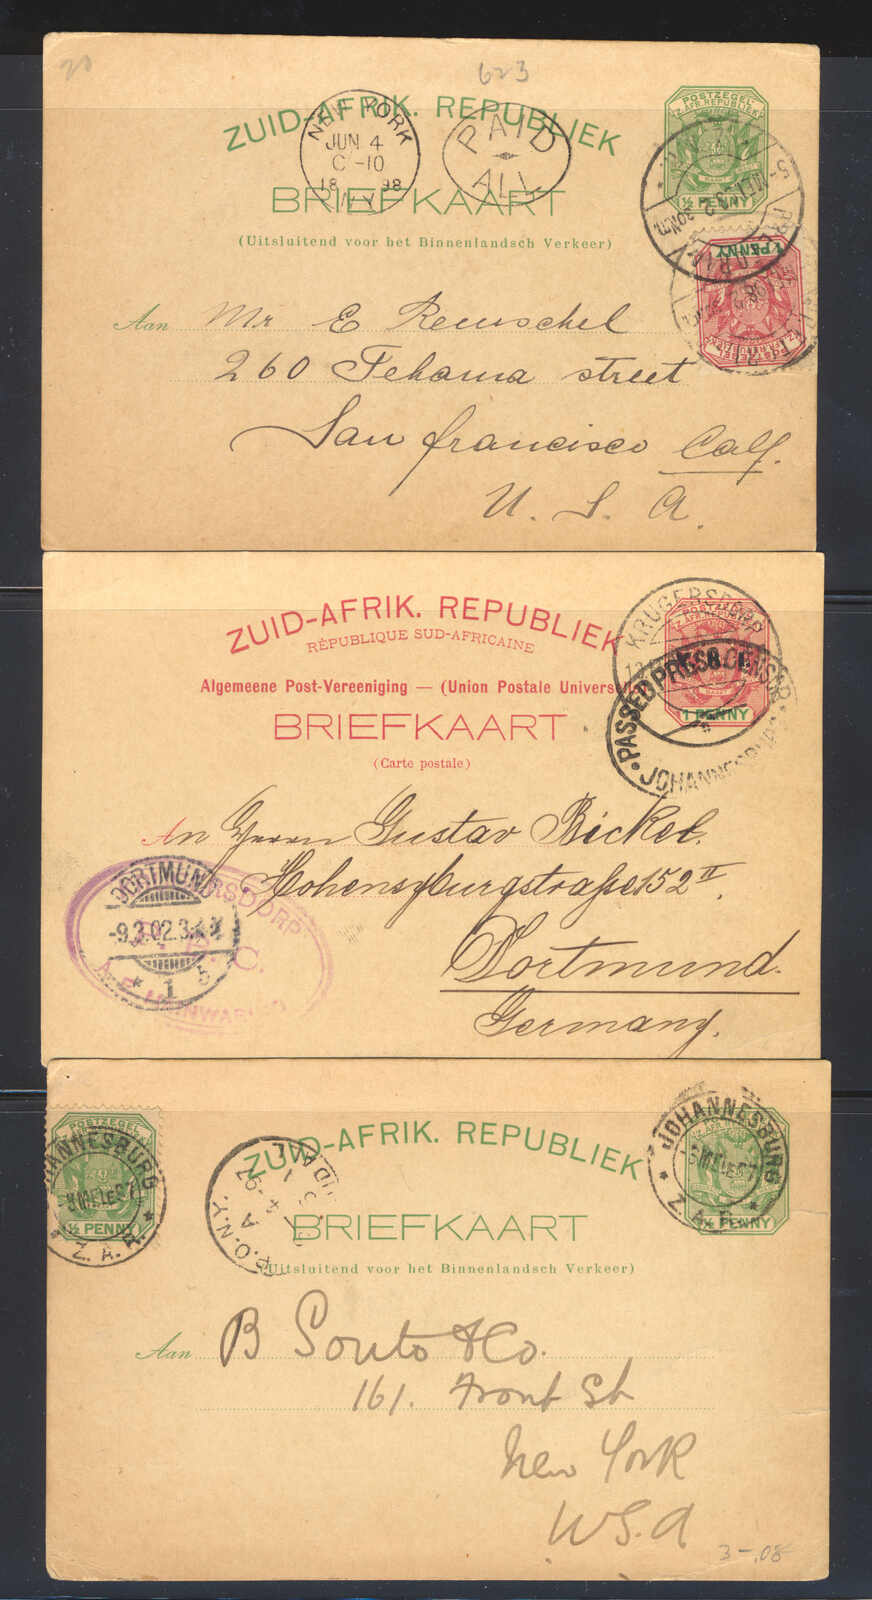 20
623
ZUID-AFRIK. REPUBLIEK
NEW YORK
JUN 4
C -10
18 98
N.Y.
PAID
ALL
BRIEFKAART
(Uitsluitend voor het Binnenlandsch Verkeer)
POSTZEGEL
Z. AFR. REPUBLIEK
½ PENNY
1 PENNY
Aan Mr E Reuschel
260 Tehama street
San francisco Calf.
U. S. A.
ZUID-AFRIK. REPUBLIEK
RÉPUBLIQUE SUD-AFRICAINE
Algemeene Post-Vereeniging — (Union Postale Universelle)
BRIEFKAART
(Carte postale)
KRUGERSDORP
PASSED PRESS CENSOR
JOHANNESBURG
1 PENNY
An Herrn Gustav Bickel.
Hohensyburgstraße 152 II
Dortmund.
Germany.
DORTMUND
-9.3.02.3-4N
* 1 b
KRUGERSDORP
ZUID-AFRIK. REPUBLIEK
BRIEFKAART
(Uitsluitend voor het Binnenlandsch Verkeer)
POSTZEGEL
JOHANNESBURG
Z. A. R.
½ PENNY
PAID ALL
P.O.N.Y.
JOHANNESBURG
Z. A. R.
½ PENNY
Aan B Souto & Co.
161. Front St
New York
U.S.A
3-.08